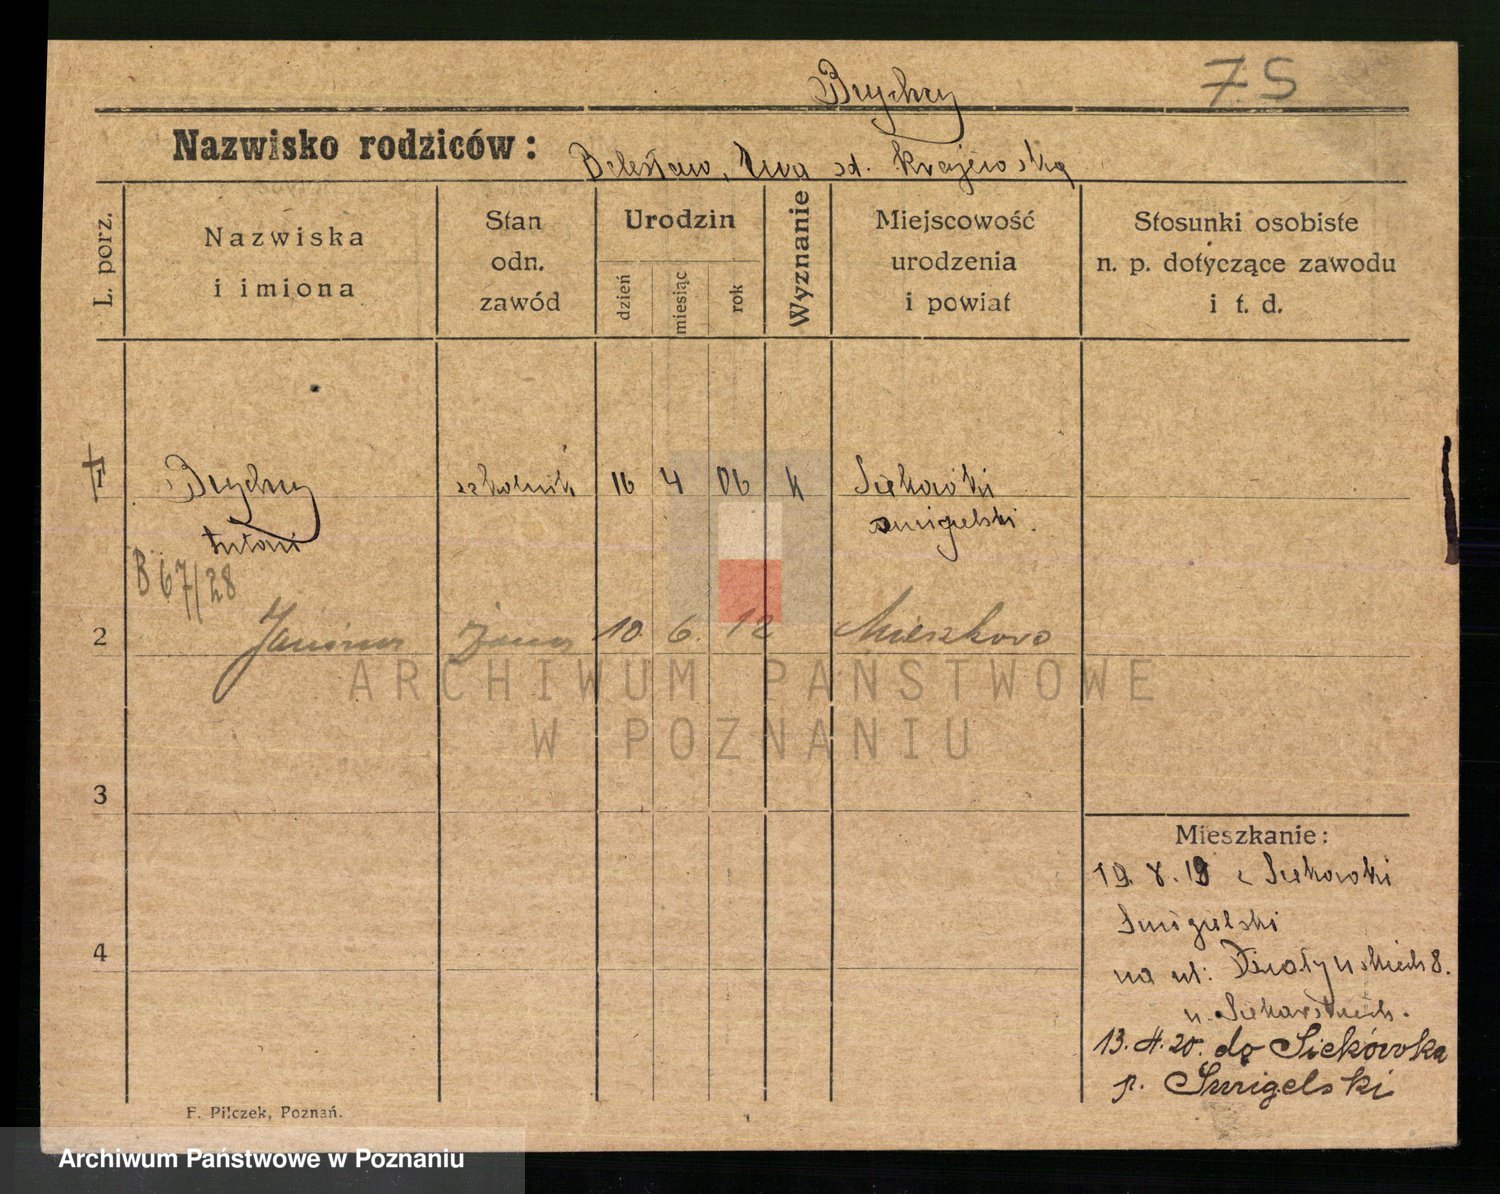 Brychcy
7.S
Nazwisko rodziców:
Bolesław, Ewa od. Krajewska
L. porz.
Nazwiska
i imiona
Stan
odn.
zawód
Urodzin
dzień
miesiąc
rok
Wyznanie
Miejscowość
urodzenia
i powiat
Stosunki osobiste
n. p. dotyczące zawodu
i t. d.
1 Brychcy szkolnik 16 4 06 k Siekowki
Antoni śmigielski.
B 67/28
2 Janina żona 10 6. 12 Mieszkowo
ARCHIWUM PAŃSTWOWE
W POZNANIU
3
Mieszkanie:
19. 8. 19 z Siekowki
Smigielski
4
na ul: Działyńskich 8.
u
13. 4. 20. do Siekówka
p. Smigelski
F. Pilczek, Poznań.
Archiwum Państwowe w Poznaniu